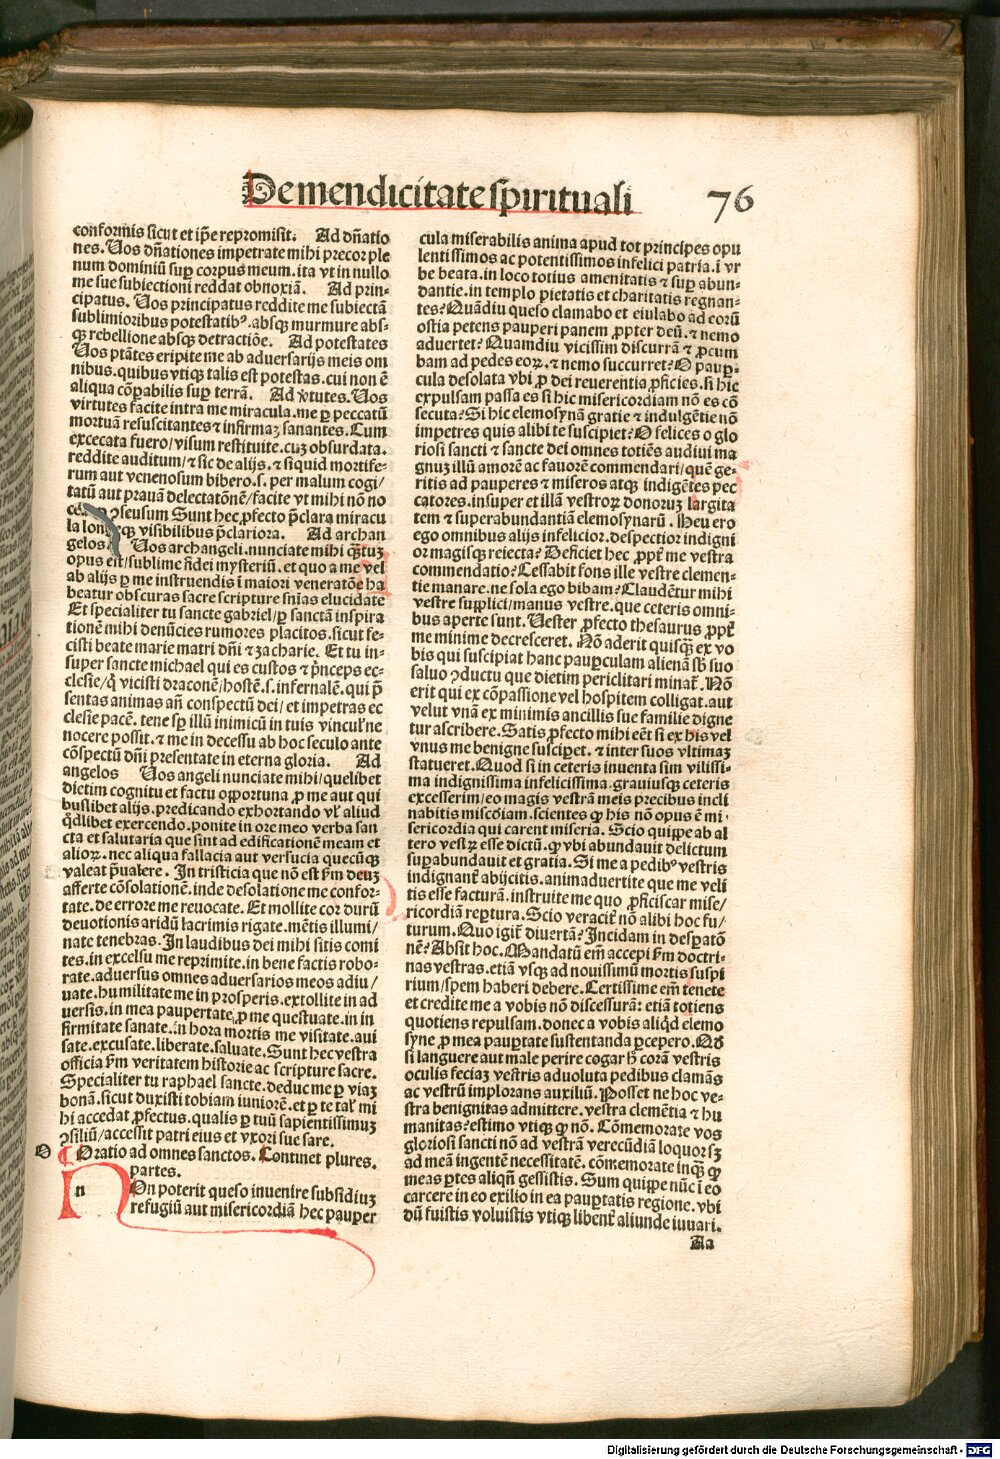 De mendicitate spirituali 76
conformis sicut et ip̄e repromisit. Ad dn̄atio
nes. Uos dn̄ationes impetrate mihi precor ple
num dominiū suꝑ corpus meum. ita vt in nullo
me sue subiectioni reddat obnoxiā. Ad prin⸗
cipatus. Uos principatus reddite me subiectā
sublimioribus potestatibꝰ. absqꝫ murmure abs⸗
qꝫ rebellione absqꝫ detractiōe. Ad potestates
Uos ptātes eripite me ab aduersarijs meis om
nibus. quibus vtiqꝫ talis est potestas. cui non ē
aliqua cōꝑabilis suꝑ terrā. Ad v̄tutes. Uos
virtutes facite intra me miracula. me ꝑ peccatū
mortuā resuscitantes ⁊ infirmaꝫ sanantes. Cum
excecata fuero / visum restituite. cuꝫ obsurdata.
reddite auditum / ⁊ sic de alijs. ⁊ si quid mortife⸗
rum aut venenosum bibero. s. per malum cogi /
tatū aut prauā delectatōnē / facite vt mihi nō no
ꝯsensum Sunt hec ꝓfecto p̄clara miracu
la qꝫ visibilibus p̄clariora. Ad archan
gelos. Uos archangeli. nunciate mihi qꝫtuꝫ
opus est / sublime fidei mysteriū. et quo a me vel
ab alijs ꝑ me instruendis ī maiori veneratōe ha
beatur obscuras sacre scripture sn̄ias elucidate
Et specialiter tu sancte gabriel / ꝑ sanctā inspira
tionē mihi denūcies rumores placitos. sicut fe⸗
cisti beate marie matri dn̄i ⁊ zacharie. Et tu in⸗
super sancte michael qui es custos ⁊ p̄nceps ec⸗
clesie / q̄ vicisti draconē / hostē. s. infernalē. qui p̄
sentas animas an̄ conspectū dei / et impetras ec
clesie pacē. tene sꝑ illū inimicū in tuis vincuł ne
nocere possit. ⁊ me in decessu ab hoc seculo ante
cōspectū dn̄i presentate in eterna gloria. Ad
angelos Uos angeli nunciate mihi / quelibet
dietim cognitu et factu oꝑportuna ꝓ me aut qui
buslibet alijs. predicando exhortando vł aliud
q̄dlibet exercendo. ponite in ore meo verba san
cta et salutaria que sint ad edificationē meam et
alioꝝ. nec aliqua fallacia aut versucia quecūqꝫ
valeat p̄ualere. In tristicia que nō est f̄m deuꝫ
afferte cōsolationē. inde desolatione me confor⸗
tate. de errore me reuocate. Et mollite cor durū
deuotionis aridū lacrimis rigate. mētis illumi /
nate tenebras. In laudibus dei mihi sitis comi
tes. in excelsu me reprimite. in bene factis robo⸗
rate. aduersus omnes aduersarios meos adiu /
uate. humilitate me in prosperis. extollite in ad
uersis. in mea paupertate ꝓ me questuate. in in
firmitate sanate. in hora mortis me visitate. aui
sate. excusate. liberate. saluate. Sunt hec vestra
officia f̄m veritatem historie ac scripture sacre.
Specialiter tu raphael sancte. deduc me ꝑ viaꝫ
bonā. sicut duxisti tobiam iuniorē. et ꝑ te tał mi
hi accedat ꝓfectus. qualis ꝑ tuū sapientissimuꝫ
ꝯsiliū / accessit patri eius et vxori sue sare.
O Oratio ad omnes sanctos. Continet plures.
partes.
n On poterit queso inuenire subsidiuꝫ
refugiū aut misericordiā hec pauper
cula miserabilis anima apud tot principes opu
lentissimos ac potentissimos infelici patria. ī vr
be beata. in loco totius amenitatis ⁊ suꝑ abun⸗
dantie. in templo pietatis et charitatis regnan⸗
tes? Quādiu queso clamabo et eiulabo ad eorū
ostia petens pauperi panem ꝓpter deū. ⁊ nemo
aduertet? Quamdiu vicissim discurrā ⁊ ꝓcum
bam ad pedes eoꝝ. ⁊ nemo succurret? O pauꝑ⸗
cula desolata vbi ꝓ dei reuerentia ꝓficies. si hic
expulsam passa es si hic misericordiam nō es cō
secuta? Si hic elemosynā gratie ⁊ indulgētie nō
impetres quis alibi te suscipiet? O felices o glo
riosi sancti ⁊ sancte dei omnes totiēs audiui ma
gnuꝫ illū amorē ac fauorē commendari / quē ge⸗
ritis ad pauperes ⁊ miseros atqꝫ indigētes pec
catores. insuper et illā vestroꝝ donoruꝫ largita
tem ⁊ superabundantiā elemosynarū. Heu ero
ego omnibus alijs infelicior. despectior indigni
or magisqꝫ reiecta? Deficiet hec ꝓpt̄ me vestra
commendatio? Cessabit fons ille vestre clemen⸗
tie manare. ne sola ego bibam? Claudētur mihi
vestre supplici / manus vestre. que ceteris omni⸗
bus aperte sunt. Uester ꝓfecto thesaurus ꝓpt̄
me minime decresceret. Nō aderit quisqꝫ ex vo
bis qui suscipiat hanc pauꝑculam alienā sb̄ suo
saluo ꝯductu que dietim periclitari minat̄. Nō
erit qui ex cōpassione vel hospitem colligat. aut
velut vnā ex minimis ancillis sue familie digne
tur ascribere. Satis ꝓfecto mihi eēt si ex his vel
vnus me benigne susciꝑet. ⁊ inter suos vltimaꝫ
statueret. Quod si in ceteris inuenta sim vilissi⸗
ma indignissima infelicissima. grauiusqꝫ ceteris
excesserim / eo magis vestrā meis precibus incli
nabitis miscd̄iam. scientes qꝫ his nō opus ē mi⸗
sericordia qui carent miseria. Scio quippe ab al
tero vesꝝ esse dictū. qꝫ vbi abundauit delictum
suꝑabundauit et gratia. Si me a pedibꝰ vestris
indignant̄ abijcitis. animaduertite que me veli
tis esse facturā. instruite me quo ꝓficiscar mise /
ricordiā reꝑtura. Scio veracit̄ nō alibi hoc fu /
turum. Quo igit̄ diuertā? Incidam in desꝑatō
nē? Absit hoc. Mandatū em̄ accepi f̄m doctri⸗
nas vestras. etiā vsqꝫ ad nouissimū mortis suspi
rium / spem haberi debere. Certissime em̄ tenete
et credite me a vobis nō discessurā: etiā totiens
quotiens repulsam. donec a vobis aliq̄d elemo
syne ꝓ mea pauꝑtate sustentanda ꝑcepero. Nō
si languere aut male perire cogar h̄ corā vestris
oculis feciaꝫ vestris aduoluta pedibus clamās
ac vestrū implorans auxiliū. Posset ne hoc ve⸗
stra benignitas admittere. vestra clemētia ⁊ hu
manitas? estimo vtiqꝫ qꝫ nō. Cōmemorate vos
gloriosi sancti nō ad vestrā verecūdiā loquor sꝫ
ad meā ingentē necessitatē. cōmemorate inqꝫ qꝫ
meas ꝑtes aliqn̄ gessistis. Sum quippe nūc ī eo
carcere in eo exilio in ea pauꝑtatis regione. vbi
dū fuistis voluistis vtiqꝫ libent̄ aliunde iuuari.
Aa
Digitalisierung gefördert durch die Deutsche Forschungsgemeinschaft - DFG